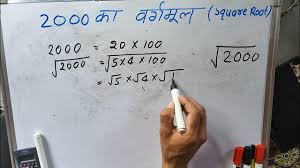 2000 का वर्गमूल (Square Root)
2000 = 20 × 100
√2000 = √5×4×100
= √5 × √4 × √1
√2000